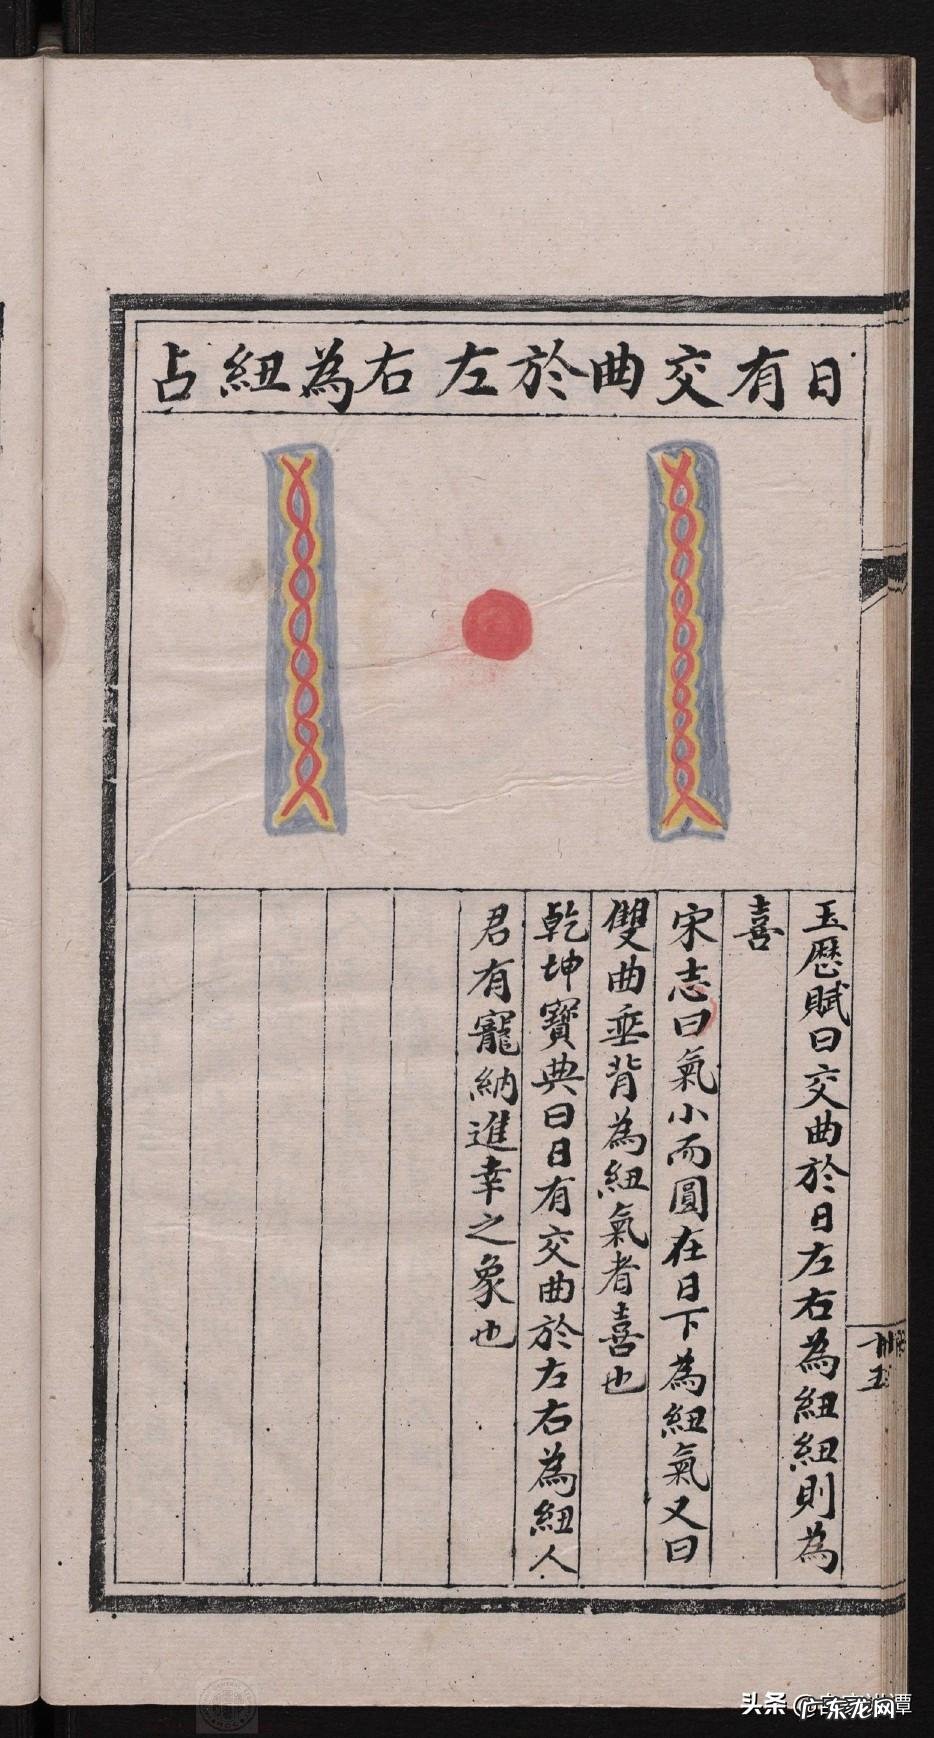 日有交曲於左右為紐占
玉歷賦曰交曲於日左右為紐紐則為
喜
宋志曰氣小而圓在日下為紐氣又曰
雙曲垂背為紐氣者喜也
乾坤寶典曰日有交曲於左右為紐人
君有寵納進幸之象也
頭条
广东龙网